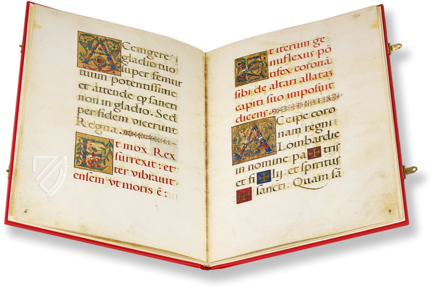 Accingere
gladio tuo
super femur
tuum potentissime
et attende q̄ sancti
non in gladio. Sed
per fidem vicerunt
Regna.
Et mox Rex
surrexit: et
ter vibravit
ensem ut moris ē:
Et iterum ge
nuflexus pō
tifex coronā
sibi de altari allatas
capiti suo imposuit
dicens.
Accipe coro
nam regni
Lombardie
in nomine pa tris
et fi lij et spiritus
sancti. Quam sā